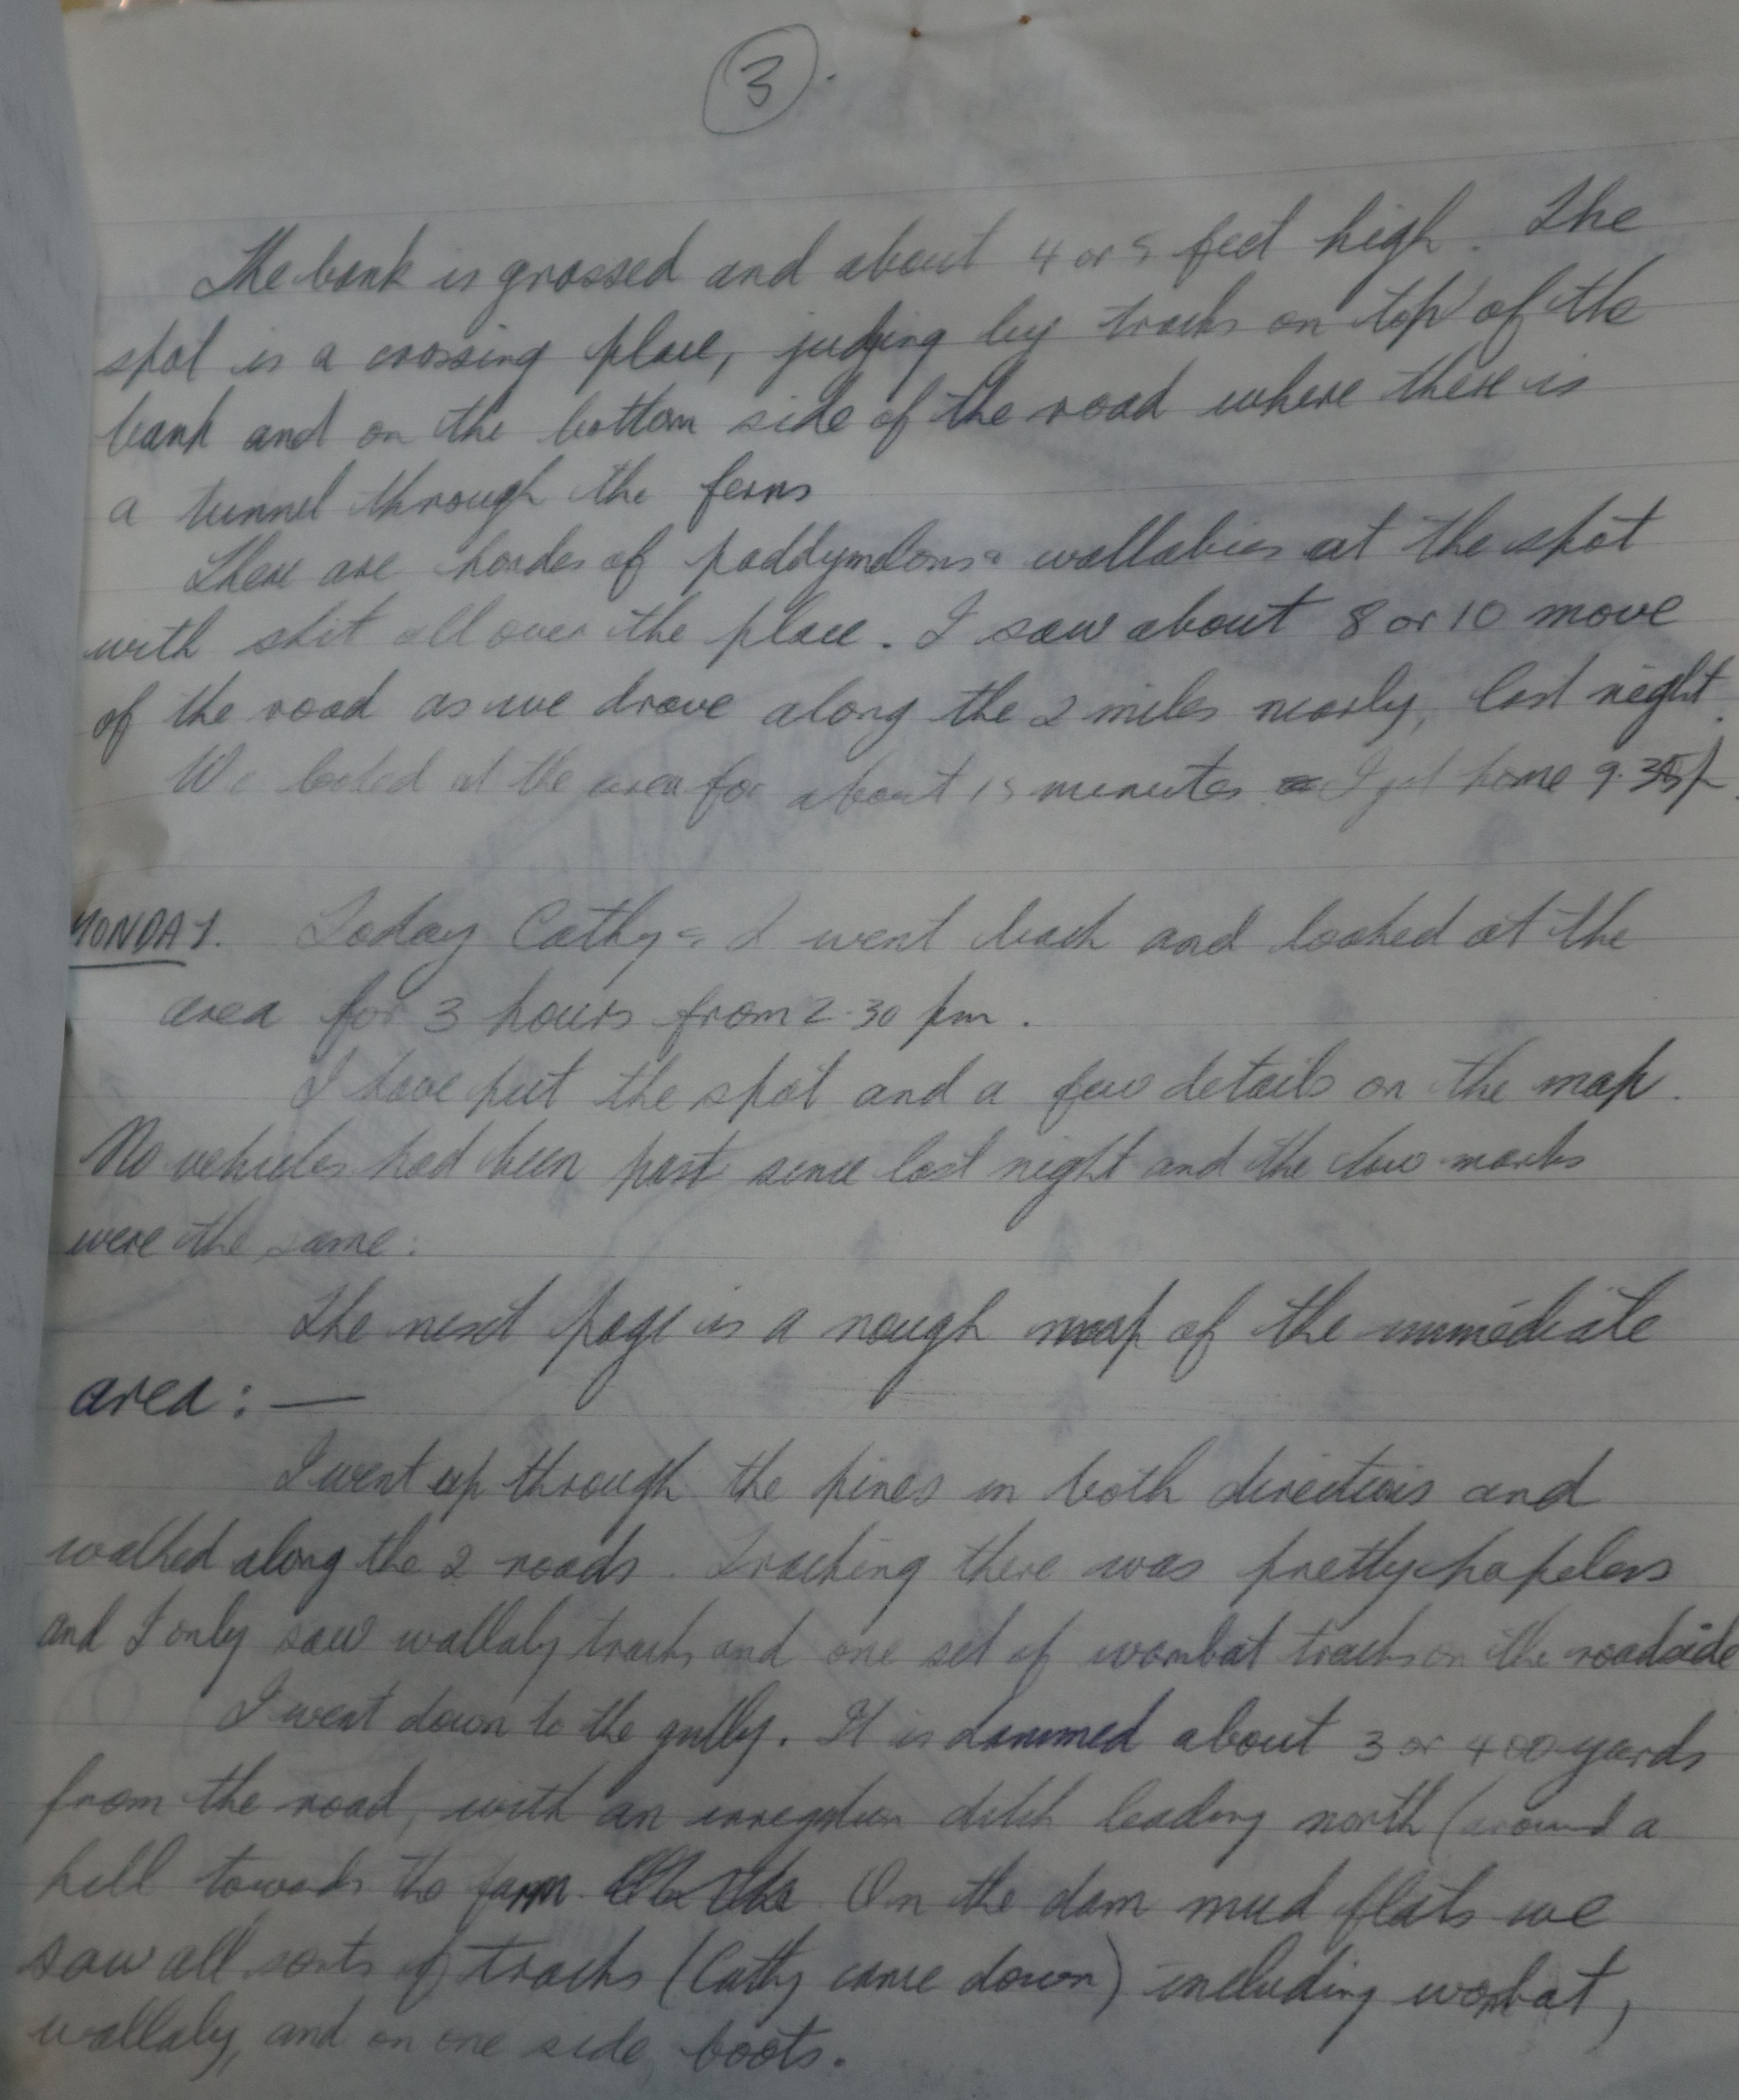 3.
The bank is grassed and about 4 or 5 feet high. The
spot is a crossing place, judging by tracks on top of the
bank and on the bottom side of the road where there is
a tunnel through the ferns
There are hordes of paddymelons & wallabies at the spot
with shit all over the place. I saw about 8 or 10 move
of the road as we drove along the 2 miles nearly, last night.
We looked at the area for about 15 minutes I got home 9.35p
MONDAY. Today Cathy & I went back and looked at the
area for 3 hours from 2.30 pm.
I have put the spot and a few details on the map.
No vehicles had been past since last night and the claw marks
were the same.
The next page is a rough map of the immediate
area: —
I went up through the pines in both directions and
walked along the 2 roads. Tracking there was pretty hopeless
and I only saw wallaby tracks and one set of wombat tracks on the roadside
I went down to the gully. It is dammed about 3 or 400 yards
from the road, with an irregation ditch leading north (around a
hill towards the farm. On the dam mud flats we
saw all sorts of tracks (Cathy came down) including wombat,
wallaby, and on one side, boots.